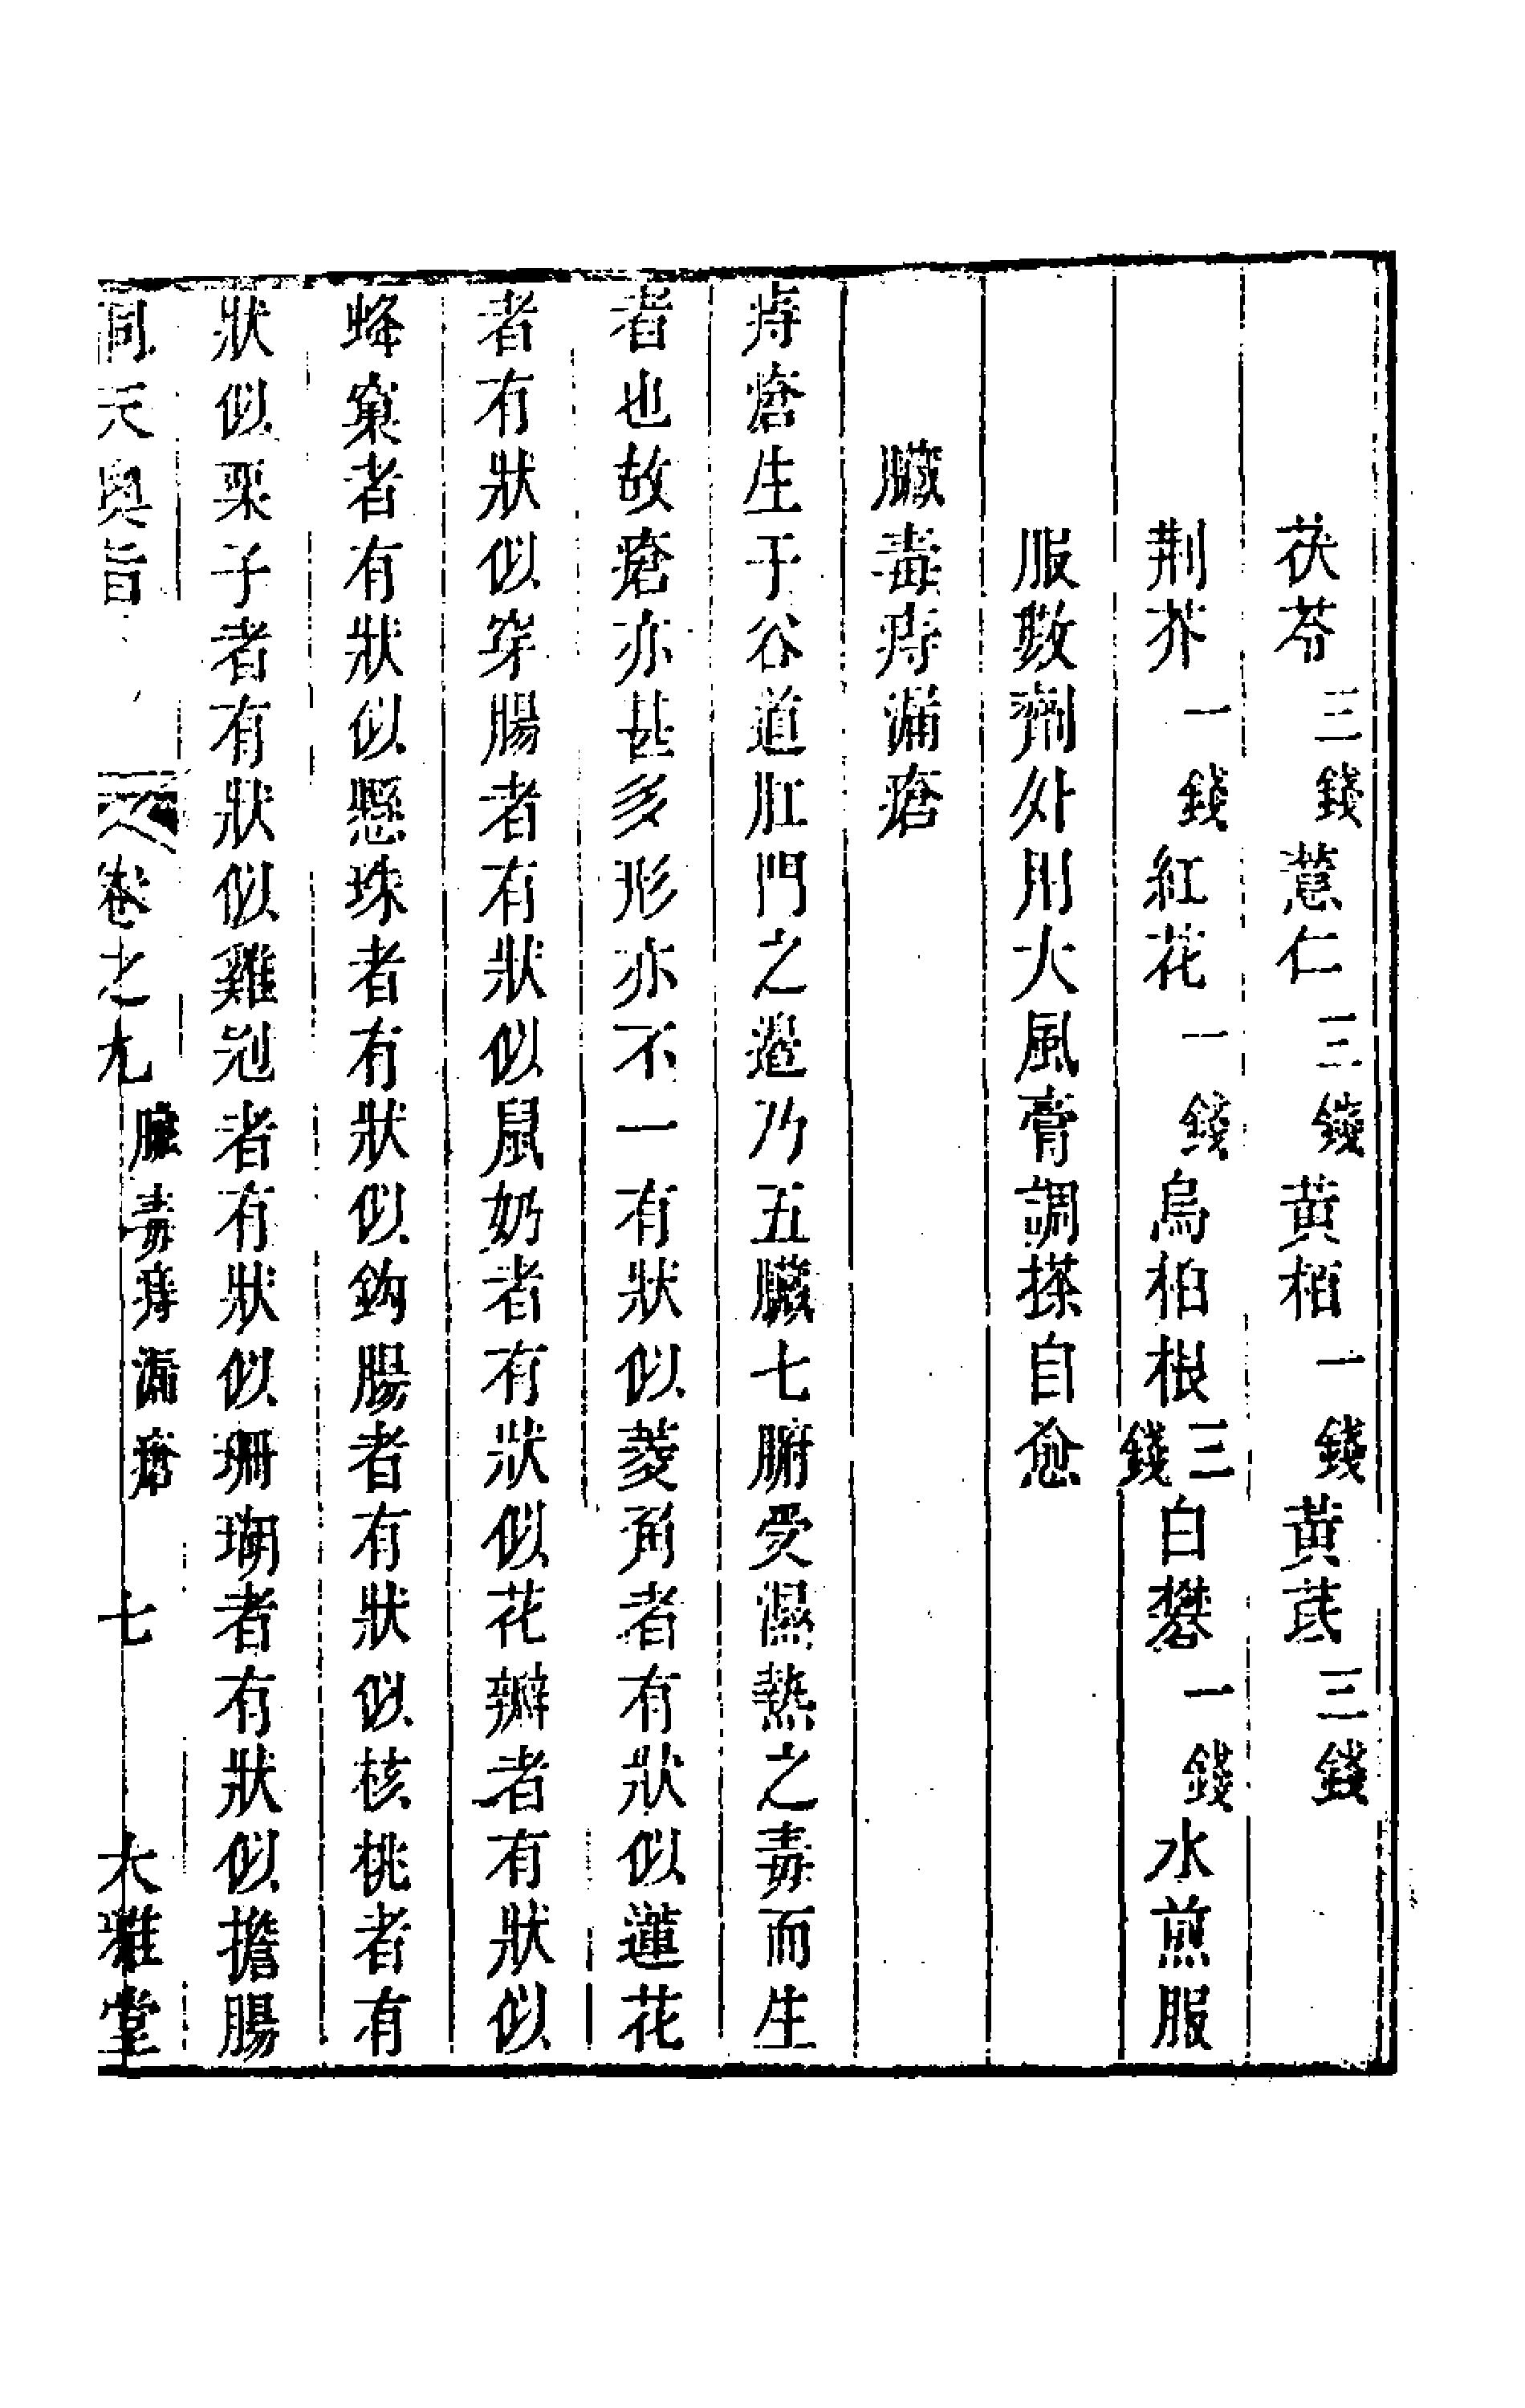 茯苓三錢薏仁三錢黄栢一錢黄芪三錢
荆芥一錢紅花一錢烏桕根三錢白礬一錢水煎服
服數劑外用大風膏調搽自愈
臟毒痔漏瘡
痔瘡生于谷道肛門之邉乃五臟七腑受濕熱之毒而生
者也故瘡亦甚多形亦不一有狀似菱角者有狀似蓮花
者有狀似穿腸者有狀似鼠奶者有狀似花瓣者有狀似
蜂窠者有狀似懸珠者有狀似鈎腸者有狀似核桃者有
狀似栗子者有狀似雞冠者有狀似珊瑚者有狀似擔腸
洞天奥旨 卷之九 臟毒痔漏瘡 七 大雅堂